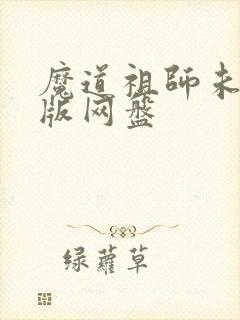 魔道祖師未
版网盤
绿蘿草